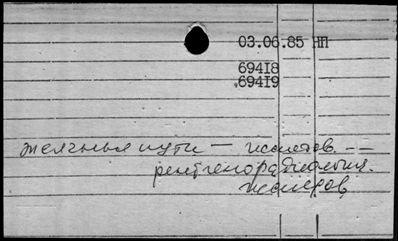 03.06.85 НП
69418
69419
желчные пути — исследов. --
рентгенорадиология.
исследов